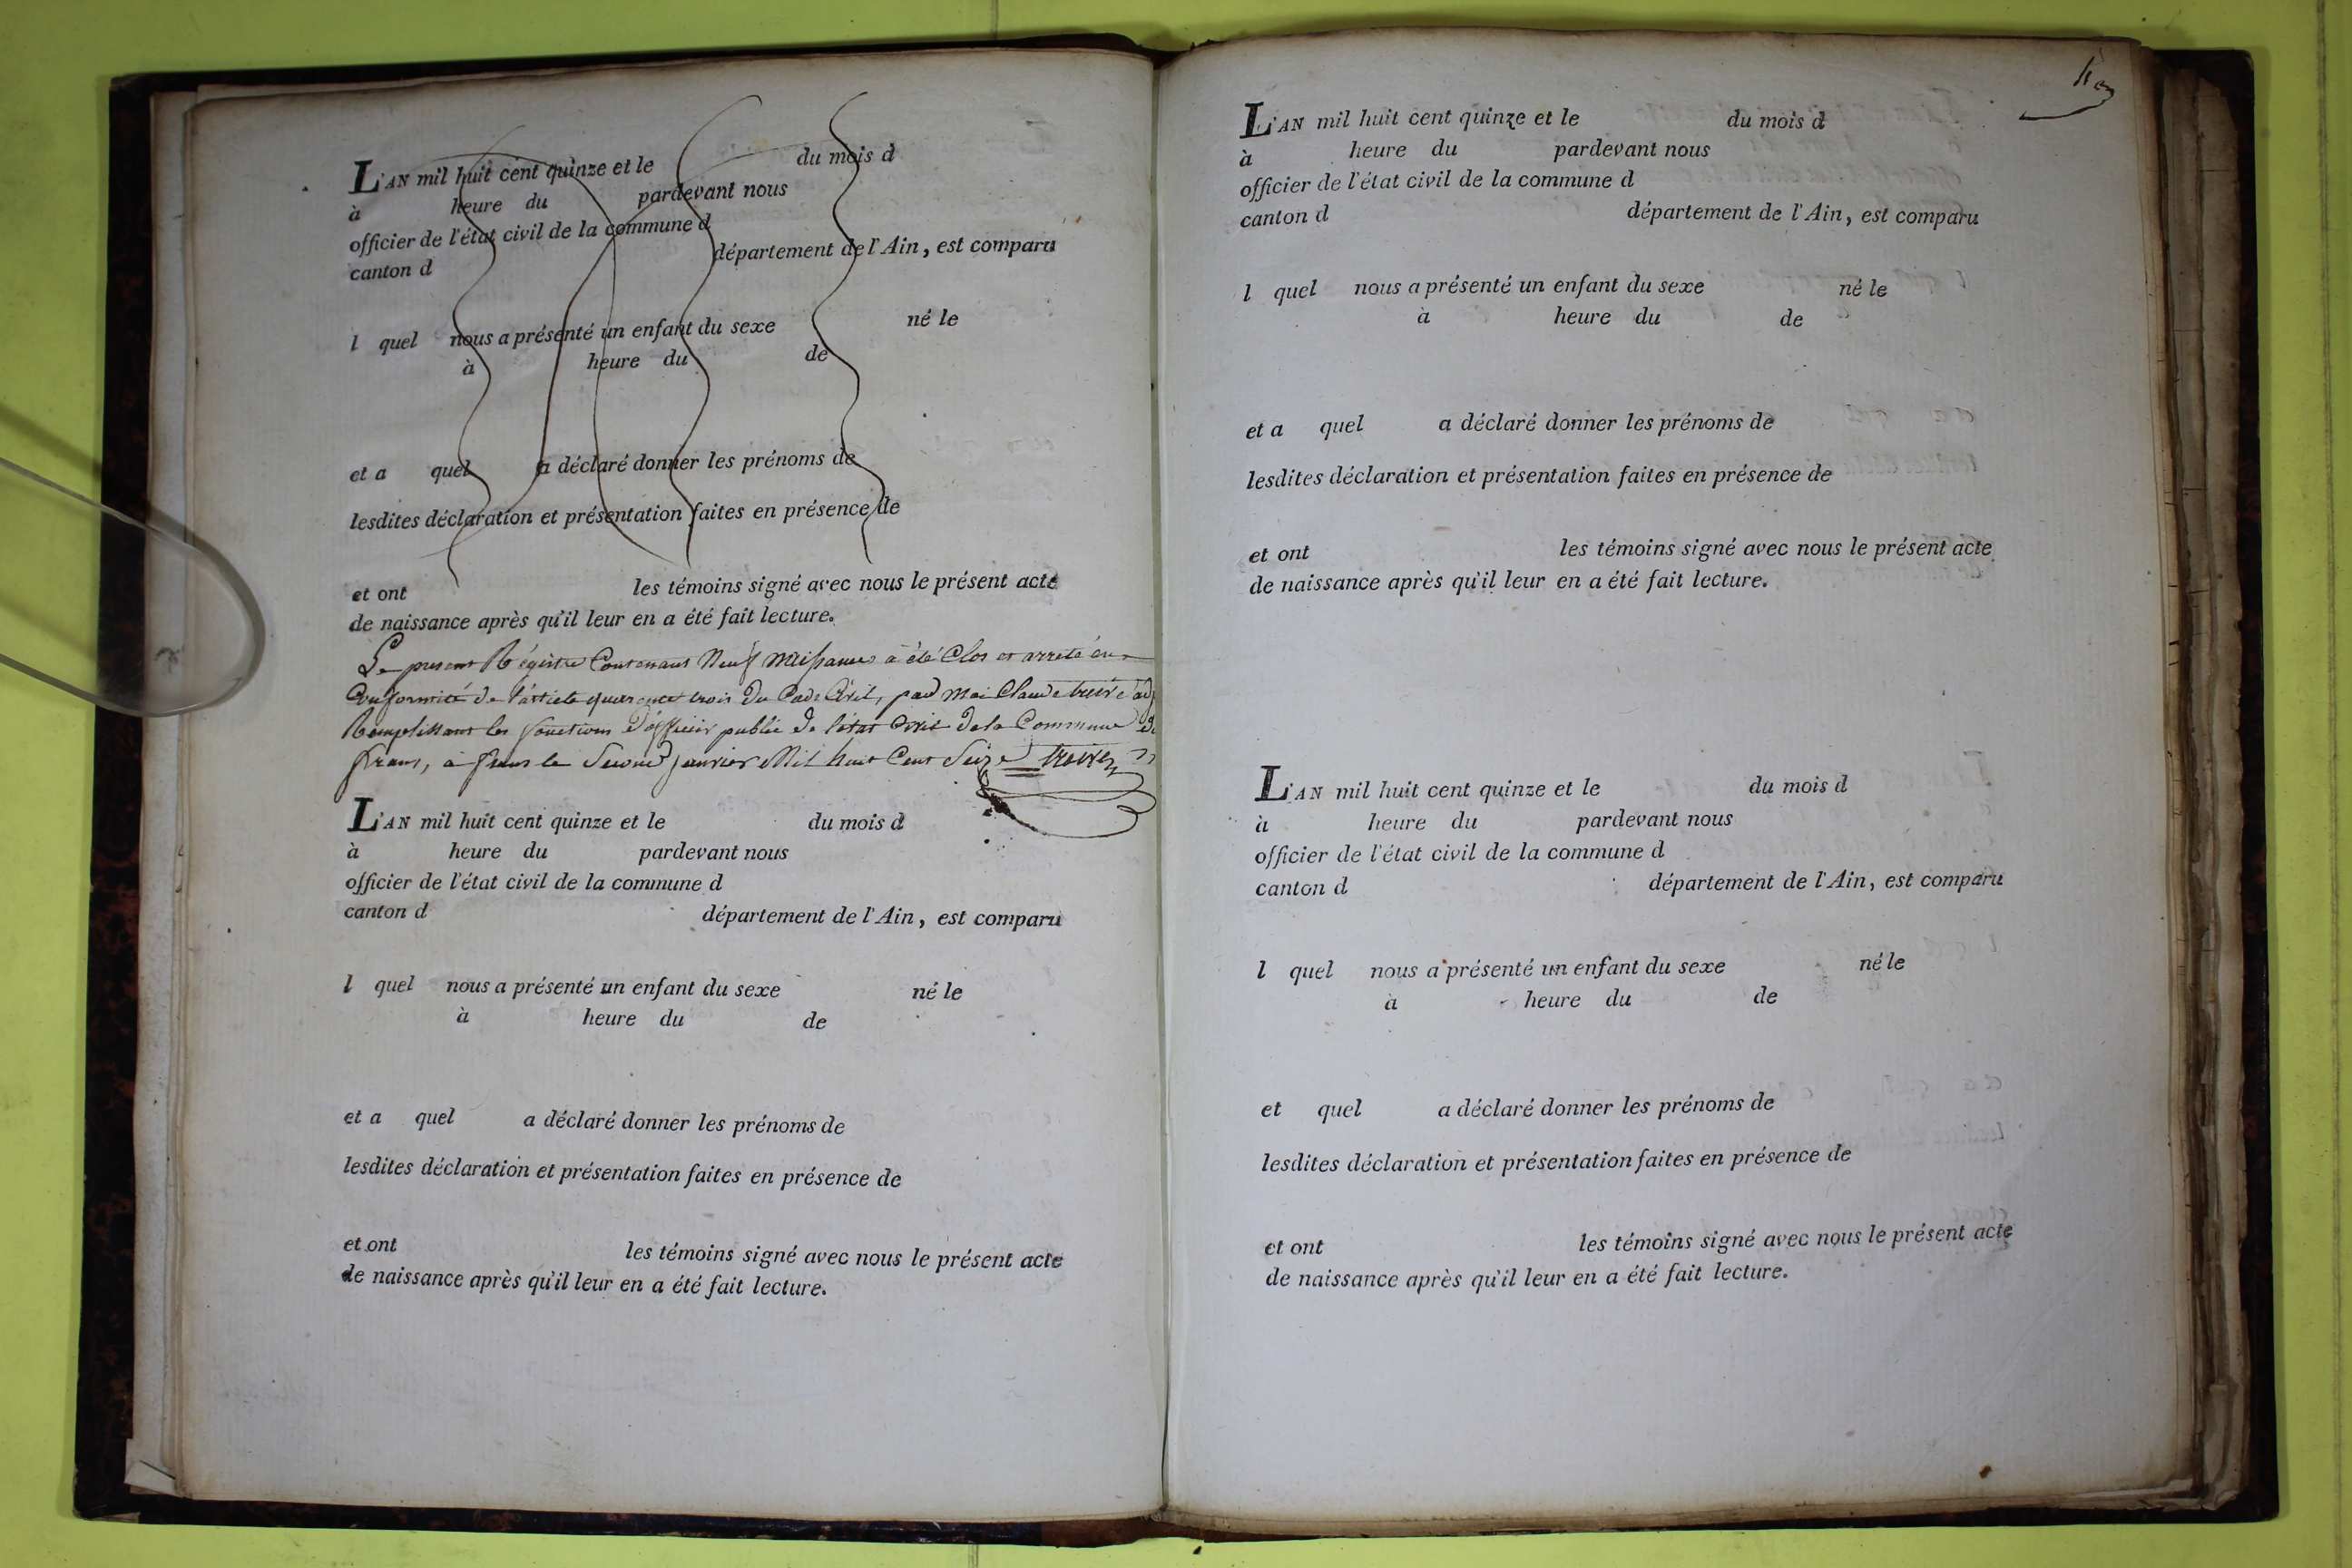 L'AN mil huit cent quinze et le du mois d
à heure du pardevant nous
officier de l'état civil de la commune d
canton d département de l'Ain, est comparu
l quel nous a présenté un enfant du sexe né le
à heure du de
et a quel a déclaré donner les prénoms de
lesdites déclaration et présentation faites en présence de
et ont les témoins signé avec nous le présent acte
de naissance après qu'il leur en a été fait lecture.
Le present Régistre Contenant Neuf Naissances à été Clos et arreté en
Conformité de l'article quarente trois du Code Civil, par Moi Claude
Remplissant les fonctions d'officier public de l'état Civil de la Commune de
frans, à frans le Second janvier Mil huit Cent Seize
L'AN mil huit cent quinze et le du mois d
à heure du pardevant nous
officier de l'état civil de la commune d
canton d département de l'Ain, est comparu
l quel nous a présenté un enfant du sexe né le
à heure du de
et a quel a déclaré donner les prénoms de
lesdites déclaration et présentation faites en présence de
et ont les témoins signé avec nous le présent acte
de naissance après qu'il leur en a été fait lecture.
L'AN mil huit cent quinze et le du mois d
à heure du pardevant nous
officier de l'état civil de la commune d
canton d département de l'Ain, est comparu
l quel nous a présenté un enfant du sexe né le
à heure du de
et a quel a déclaré donner les prénoms de
lesdites déclaration et présentation faites en présence de
et ont les témoins signé avec nous le présent acte
de naissance après qu'il leur en a été fait lecture.
L'AN mil huit cent quinze et le du mois d
à heure du pardevant nous
officier de l'état civil de la commune d
canton d département de l'Ain, est comparu
l quel nous a présenté un enfant du sexe né le
à heure du de
et quel a déclaré donner les prénoms de
lesdites déclaration et présentation faites en présence de
et ont les témoins signé avec nous le présent acte
de naissance après qu'il leur en a été fait lecture.